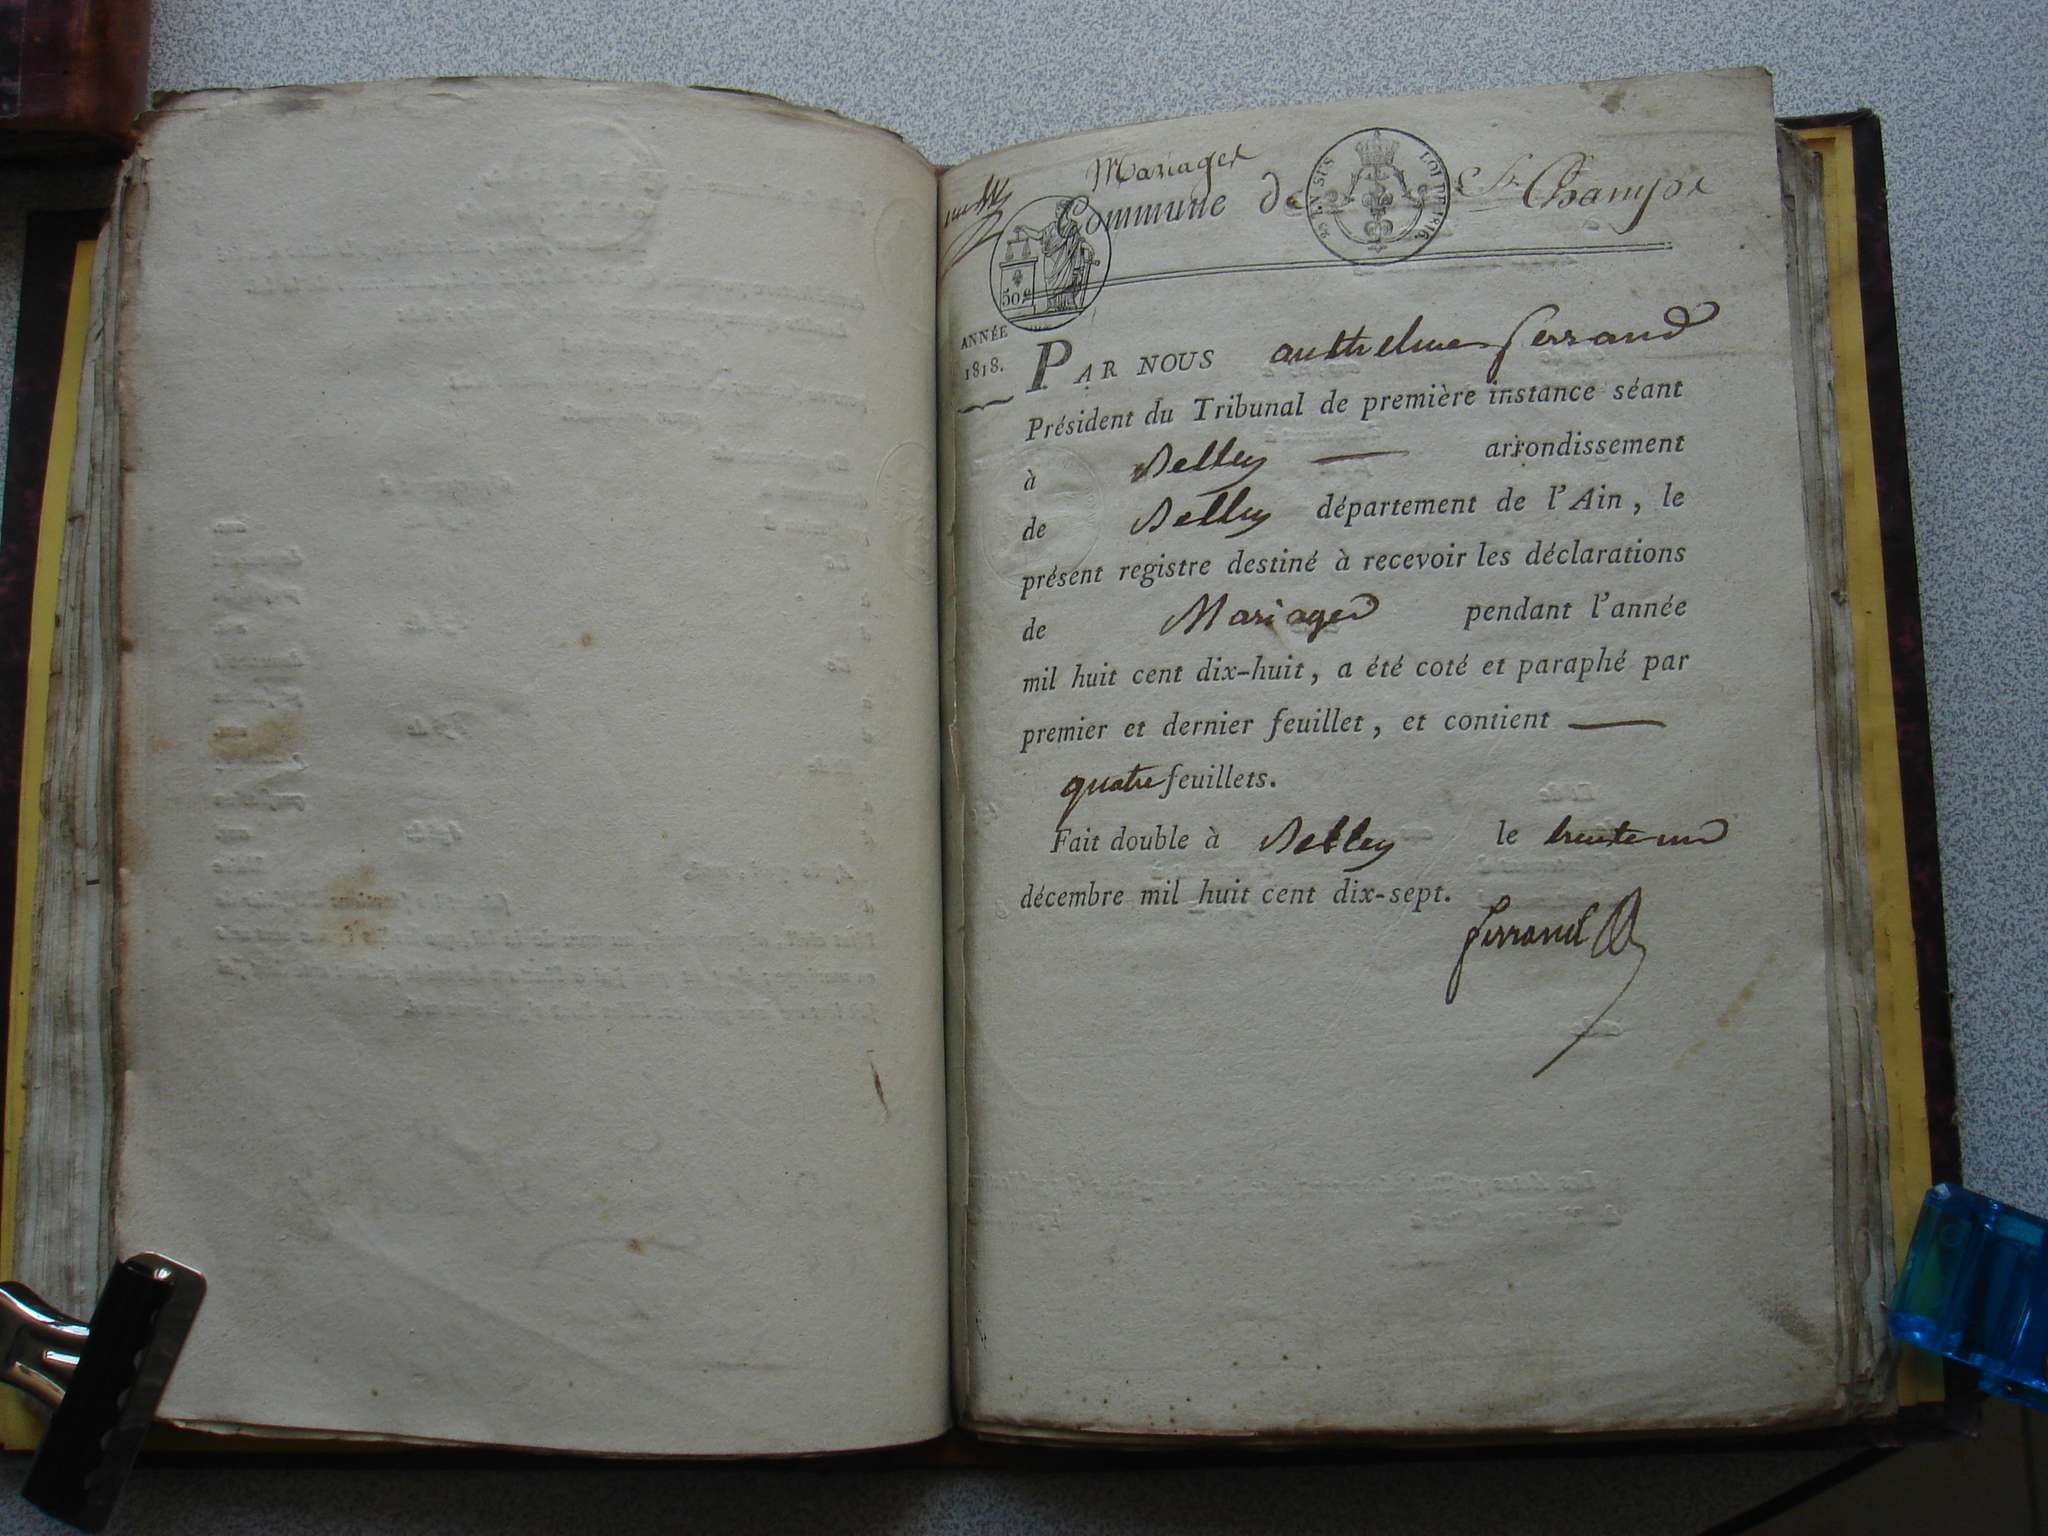 Mariages
Commune de St. Champs
25 EN SUS
LOI DE 1816
50 c
ANNÉE
1818.
PAR NOUS anthelme ferrand
Président du Tribunal de première instance séant
à Belley arrondissement
de Belley département de l'Ain, le
présent registre destiné à recevoir les déclarations
de Mariages pendant l'année
mil huit cent dix-huit, a été coté et paraphé par
premier et dernier feuillet, et contient —
quatre feuillets.
Fait double à Belley le trente un
décembre mil huit cent dix-sept.
ferrand